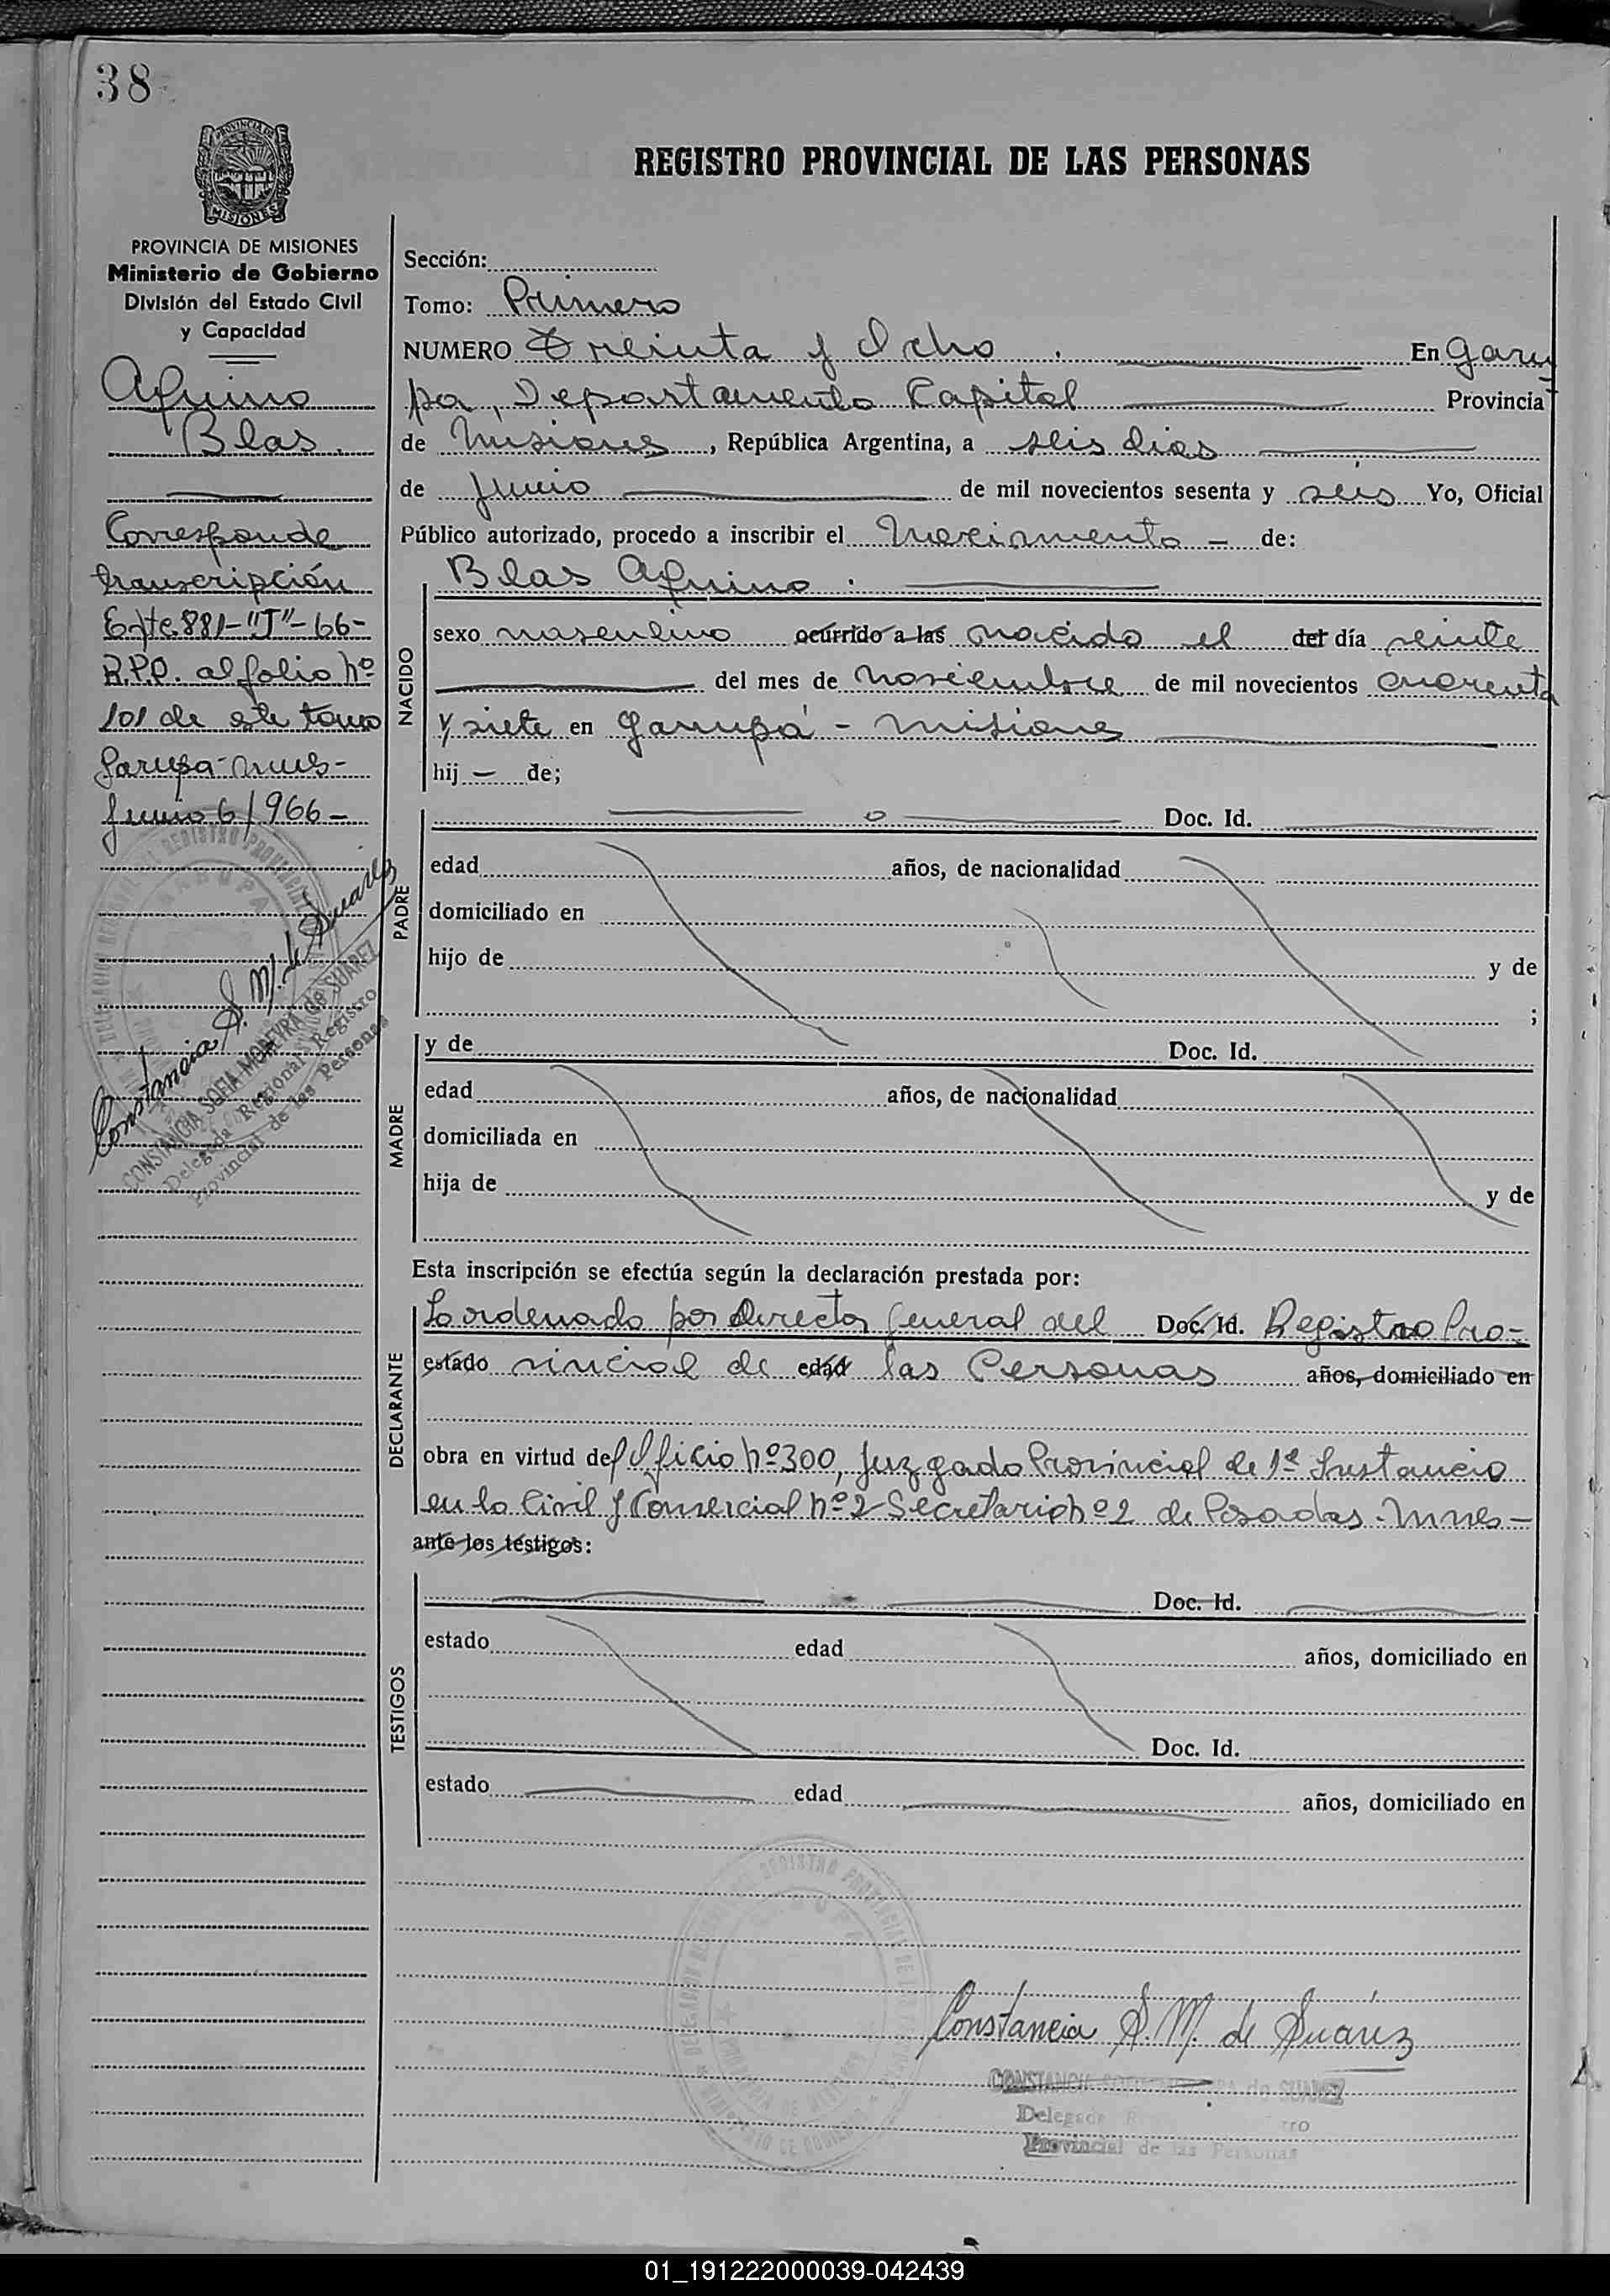 38
PROVINCIA DE
MISIONES
PROVINCIA DE MISIONES
Ministerio de Gobierno
División del Estado Civil
y Capacidad
Aquino
Blas.
Corresponde
transcripción
Exte. 881-"J"-66-
R.P.P. al folio Nº
101 de este tomo
Garupá-Mnes-
Junio 6/966-
Constancia S. M. de Suarez
CONSTANCIA SOFIA MOREYRA de SUAREZ
Delegada Regional Registro
Provincial de las Personas
REGISTRO PROVINCIAL DE LAS PERSONAS
Sección:
Tomo: Primero
NUMERO Treinta y Ocho. En Garu
pa, Departamento Capital Provincia
de Misiones, República Argentina, a seis dias
de Junio de mil novecientos sesenta y seis Yo, Oficial
Público autorizado, procedo a inscribir el Nacimiento - de:
NACIDO
Blas Aquino.
sexo masculino ocurrido a las nacido el del día veinte
del mes de Noviembre de mil novecientos cuarenta
y siete en Garupá - Misiones
hij - de;
PADRE
Doc. Id.
edad años, de nacionalidad
domiciliado en
hijo de y de
;
MADRE
y de Doc. Id.
edad años, de nacionalidad
domiciliada en
hija de y de
Esta inscripción se efectúa según la declaración prestada por:
DECLARANTE
Lo ordenado por Director General del Doc. Id. Registro Pro-
estado vincial de edad las Personas años, domiciliado en
obra en virtud del Oficio Nº 300, Juzgado Provincial de 1ª Instancia
en lo Civil y Comercial Nº 2 Secretaria Nº 2 de Posadas - Mnes-
ante los testigos:
TESTIGOS
Doc. Id.
estado edad años, domiciliado en
Doc. Id.
estado edad años, domiciliado en
Constancia S. M. de Suárez
CONSTANCIA de SUAREZ
Delegada
Provincial de las Personas
01_191222000039-042439